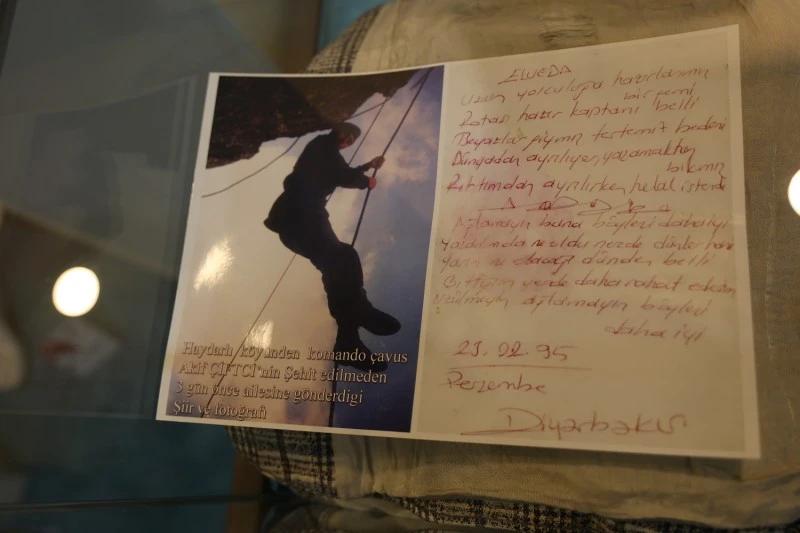 Haydarlı köyünden komando çavus
Akif ÇİFTCİ'nin Şehit edilmeden
3 gün önce ailesine gönderdigi
Şiir ve fotografı
ELVEDA
Uzun yolculuğa hazırlanmış
bir gemi
Rotası hazır kaptanı belli
Beyazlar giymiş tertemiz bedeni
Dünyadan ayrılıyen yaşamaktan
Rıhtımdan ayrılırken helal isterdi
Ağlamayın bana böylesi daha iyi
nerde dünler hani
yarın ne olacağı dünden belli
Gittiğim yerde daha rahat ederim
üzülmeyin ağlamayın böylesi
daha iyi
23.02.95
Perşembe
Diyarbakır